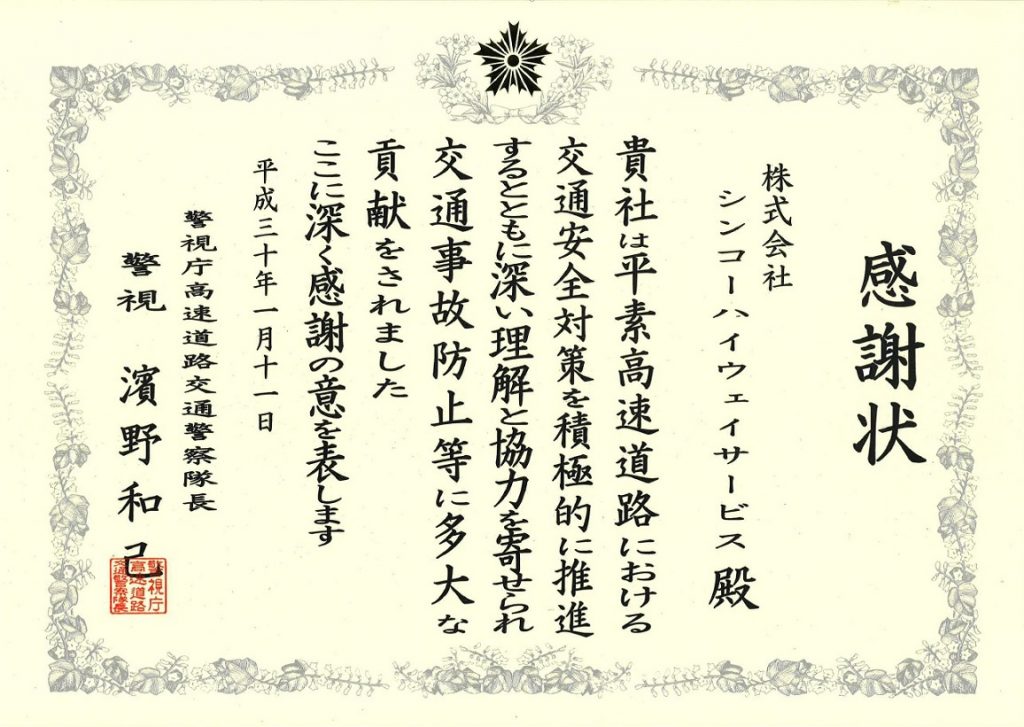 感謝状
株式会社
シンコーハイウェイサービス殿
貴社は平素高速道路における
交通安全対策を積極的に推進
するとともに深い理解と協力を寄せられ
交通事故防止等に多大な
貢献をされました
ここに深く感謝の意を表します
平成三十年一月十一日
警視庁高速道路交通警察隊長
警視 濱野和己
警視庁
高速道路
交通警察隊長